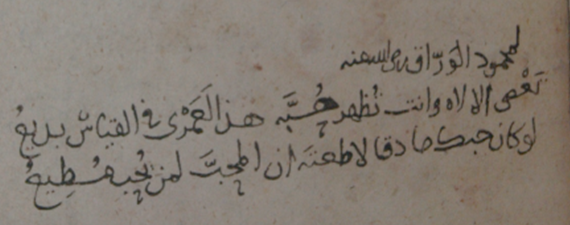 لمحمود الوراق رضى الله عنه
تَعْصى الالاه وانت تُظهر حُبَّه هذا لَعَمْرى في القياس بديعُ
لو كان حبك صادقا لاطعته ان المحبَّ لمن يُحِب مُطِيعُ